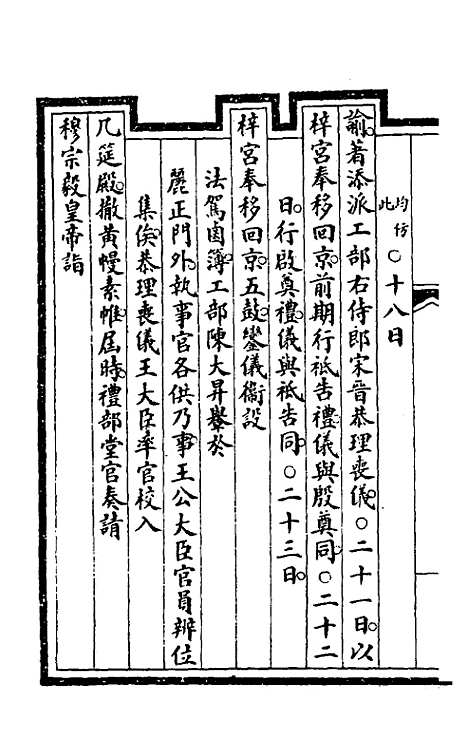 均仿此○十八日
諭著添派工部右侍郎宋晉恭理喪儀○二十一日以
梓宮奉移回京前期行祗告禮儀與殷奠同○二十二
日行啟奠禮儀與祗告同○二十三日
梓宮奉移回京五鼓鑾儀衞設
法駕鹵簿工部陳大昇轝於
麗正門外執事官各供乃事王公大臣官員辨位
集俟恭理喪儀王大臣率官校入
几筵殿撤黃幔素帷屆時禮部堂官奏請
穆宗毅皇帝詣